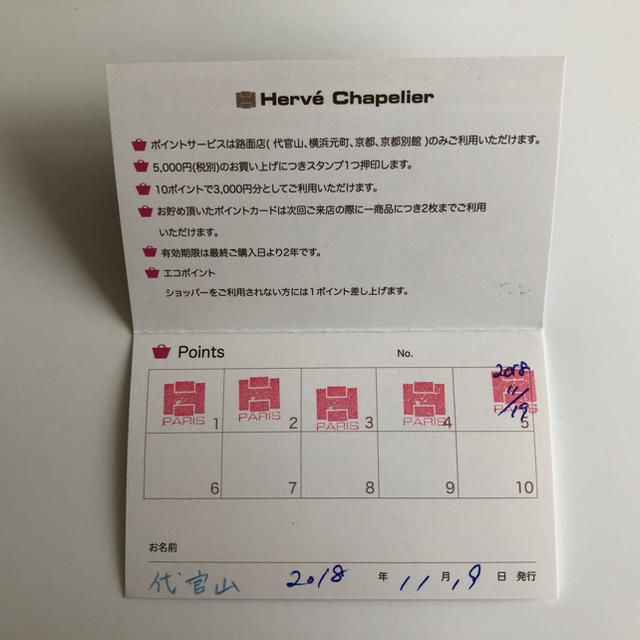 Hervé Chapelier
ポイントサービスは路面店( 代官山、横浜元町、京都、京都別館 )のみご利用いただけます。
5,000円(税別)のお買い上げにつきスタンプ1つ押印します。
10ポイントで3,000円分としてご利用いただけます。
お貯め頂いたポイントカードは次回ご来店の際に一商品につき2枚までご利用
いただけます。
有効期限は最終ご購入日より2年です。
エコポイント
ショッパーをご利用されない方には1ポイント差し上げます。
Points No.
2018
11/19
PARIS 1 PARIS 2 PARIS 3 PARIS 4 PARIS 5
6 7 8 9 10
お名前
代官山 2018 年 11 月 19 日 発行